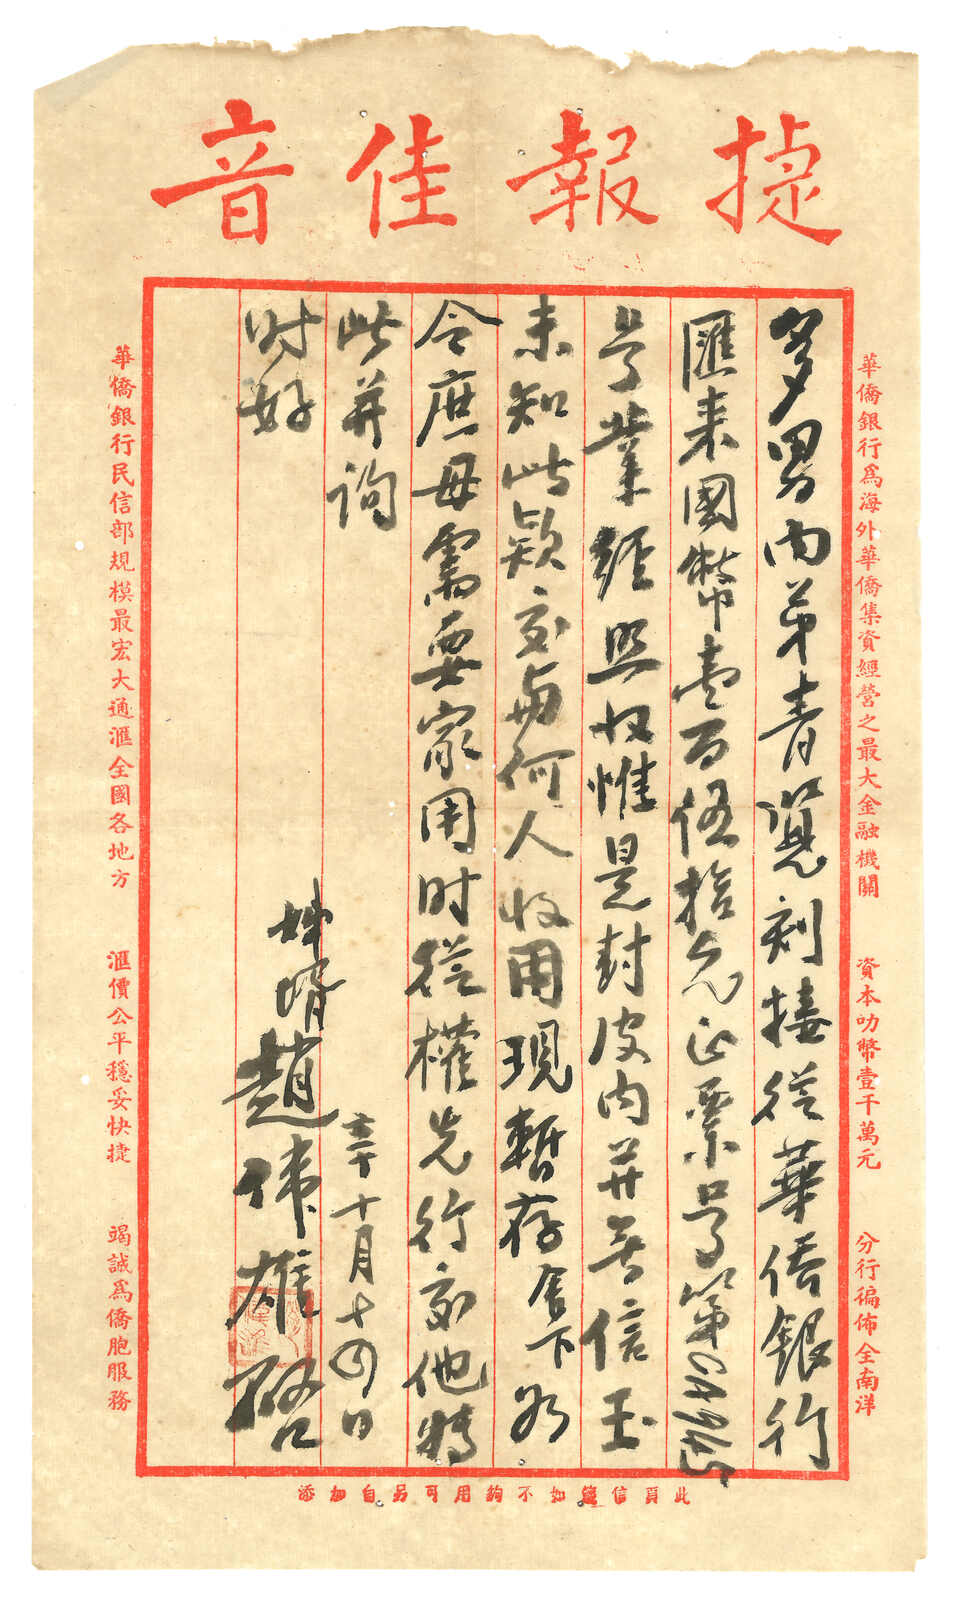 捷報佳音
華僑銀行為海外華僑集資經營之最大金融機關 資本叻幣壹千萬元 分行徧佈全南洋
多男內弟青覽刻接從華僑銀行
匯來國幣壹百伍拾元正票号第
号業經照收惟是封皮內并無信玉
未知此款交與何人收用現暫存舍下如
令庶母需要家用时從權先行交他特
此并詢
时好
十月十四日
姊婿趙偉雄啓
華僑銀行民信部規模最宏大通滙全國各地方 滙價公平穩妥快捷 竭誠為僑胞服務
此頁信箋如不夠用可另自加添